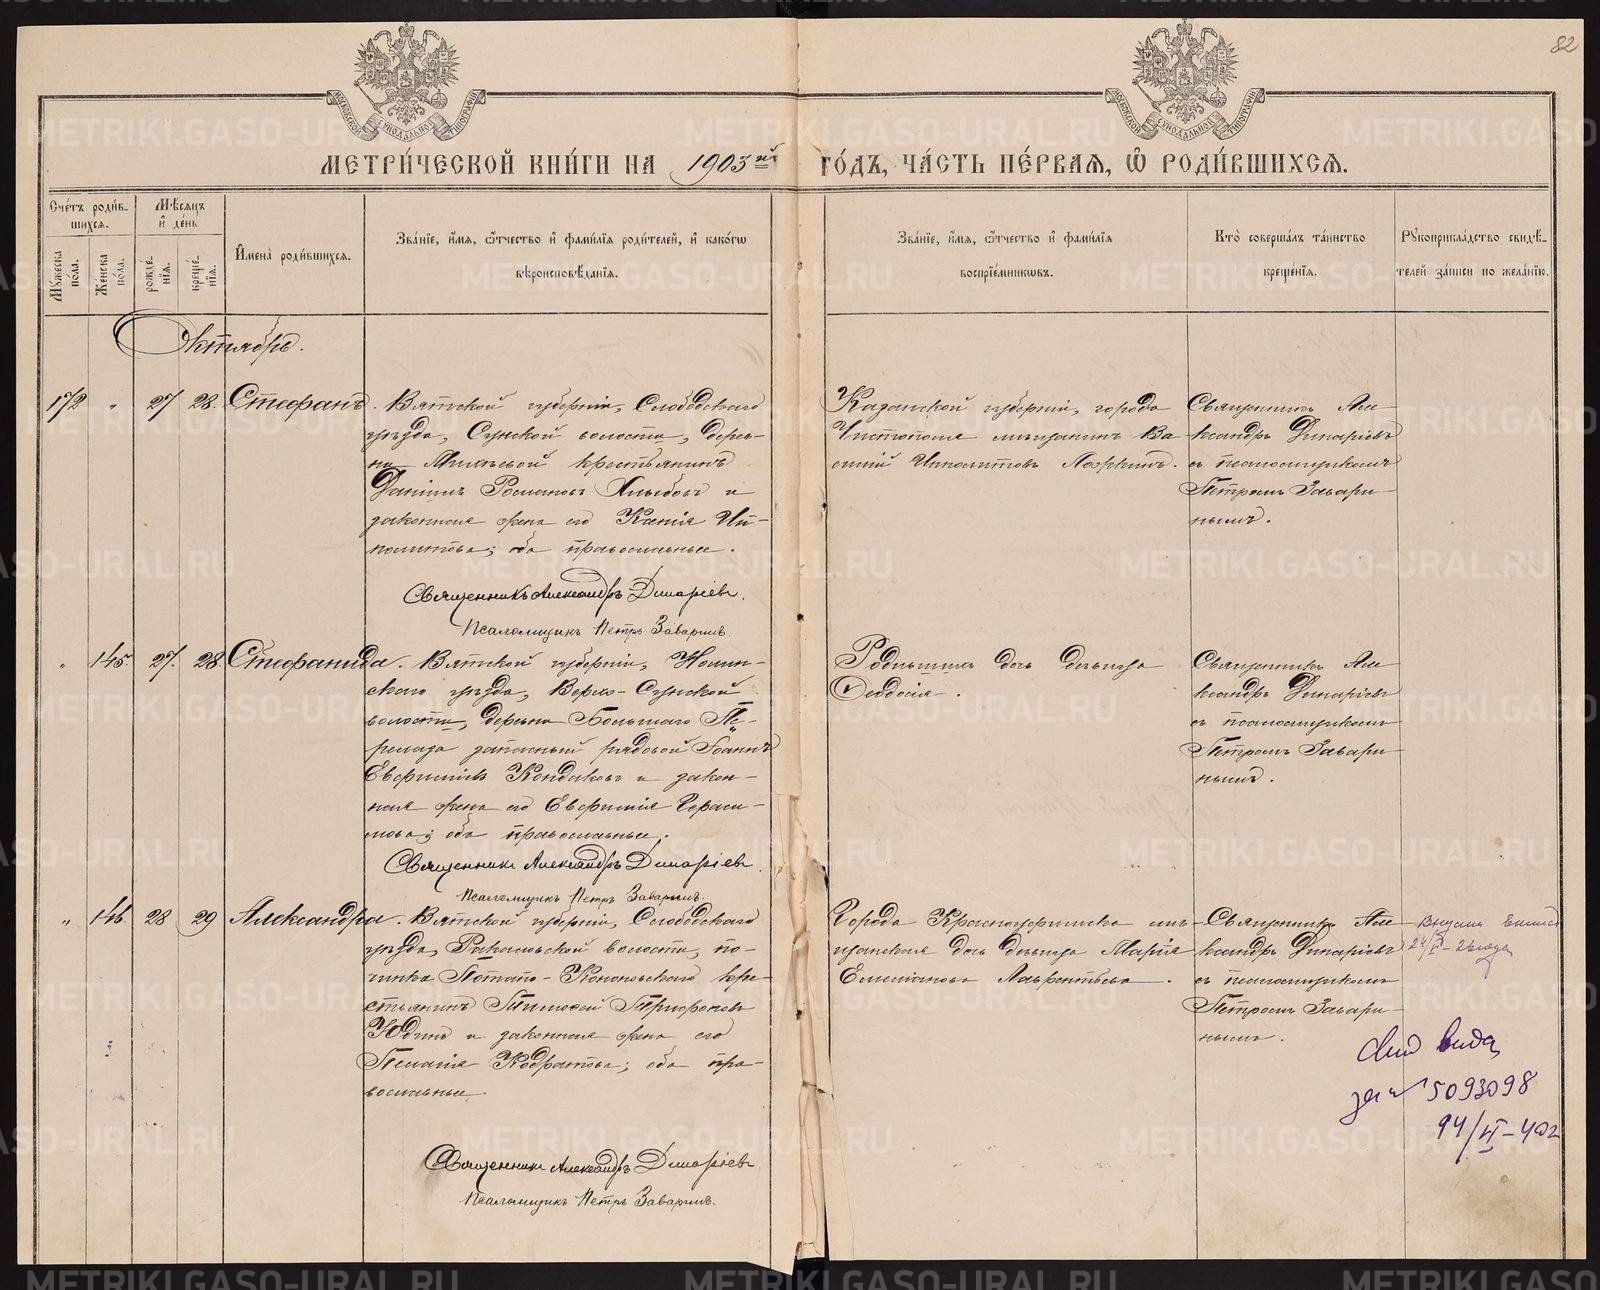 82
МОСКОВСКОЙ СѴНОДАЛЬНОЙ ТИПОГРАФІИ
МОСКОВСКОЙ СѴНОДАЛЬНОЙ ТИПОГРАФІИ
МЕТРИ́ЧЕСКОЙ КНИ́ГИ НА 1903й ГО́ДЪ, ЧА́СТЬ ПЕ́РВАЯ, Ѡ РОДИ́ВШИХСЯ.
Сче́тъ роди́в-
шихся.
Мѣ́сяцъ
и де́нь
Му́жеска
по́ла.
Же́нска
по́ла.
рожде́-
нїя.
креще́-
нїя.
Имена̀ роди́вшихся.
Зва́нїе, и́мя, ѻ́тчество и фами́лїя роди́телей, и како́гѡ
вѣроисповѣ́данїя.
Зва́нїе, и́мя, ѻ́тчество и фами́лїя
воспрїе́мниковъ.
Кто̀ соверша́лъ та́инство
креще́нїя.
Рукоприкла́дство свидѣ́-
телей за́писи по жела́нїю.
Октябрь.
172 " 27 28. Стефанъ.
Вятской губерніи, Слободскаго
уѣзда, Сунской волости, дерев-
ни крестьянинъ
Даніилъ Романовъ и
законная жена его Ксенія Ип-
политова; оба православные.
Священникъ Александръ Динаріевъ.
Псаломщикъ Петръ Заваринъ.
Казанской губерніи, города
Чистополя мѣщанинъ Ва-
силій Ипполитовъ
Священникъ Але-
ксандръ Динаріевъ
съ псаломщикомъ
Петромъ Завари-
нымъ.
" 145. 27. 28. Стефанида.
Вятской губерніи, Нолин-
скаго уѣзда, Верхо-Сунской
волости, деревни Большаго Пе-
релаза запасный рядовой Іоаннъ
Евфиміевъ Кондаковъ и закон-
ная жена его Евфимія Гераси-
мова; оба православные.
Священникъ Александръ Динаріевъ.
Псаломщикъ Петръ Заваринъ.
Родившихъ дочь дѣвица
Ѳеодосія.
Священникъ Але-
ксандръ Динаріевъ
съ псаломщикомъ
Петромъ Завари-
нымъ.
" 146 28 29 Александра.
Вятской губерніи, Слободскаго
уѣзда, волости, по-
чинка Потапо-Кононовскаго кре-
стьянинъ Тимофей Трифоновъ
Юдинъ и законная жена его
Пелагія Кодратова; оба пра-
вославные.
Священникъ Александръ Динаріевъ
Псаломщикъ Петръ Заваринъ.
Города Красноуфимска мѣ-
щанская дочь дѣвица Марія
Емеліанова Лаврентьева.
Священникъ Але-
ксандръ Динаріевъ
съ псаломщикомъ
Петромъ Завари-
нымъ.
24/II-26 года
за № 5093098
94/II-402
METRIKI.GASO-URAL.RU